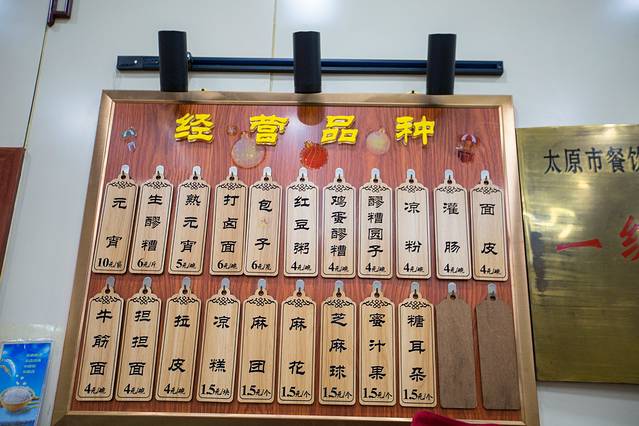 经营品种
元宵 10元/斤
生醪糟 6元/斤
熟元宵 5元/碗
打卤面 6元/碗
包子 6元/笼
红豆粥 4元/碗
鸡蛋醪糟 4元/碗
醪糟圆子 4元/碗
凉粉 4元/碗
灌肠 4元/碗
面皮 4元/碗
牛筋面 4元/碗
担担面 4元/碗
拉皮 4元/碗
凉糕 1.5元/块
麻团 1.5元/个
麻花 1.5元/个
芝麻球 1.5元/个
蜜汁果 1.5元/个
糖耳朵 1.5元/个
太原市餐饮
一级